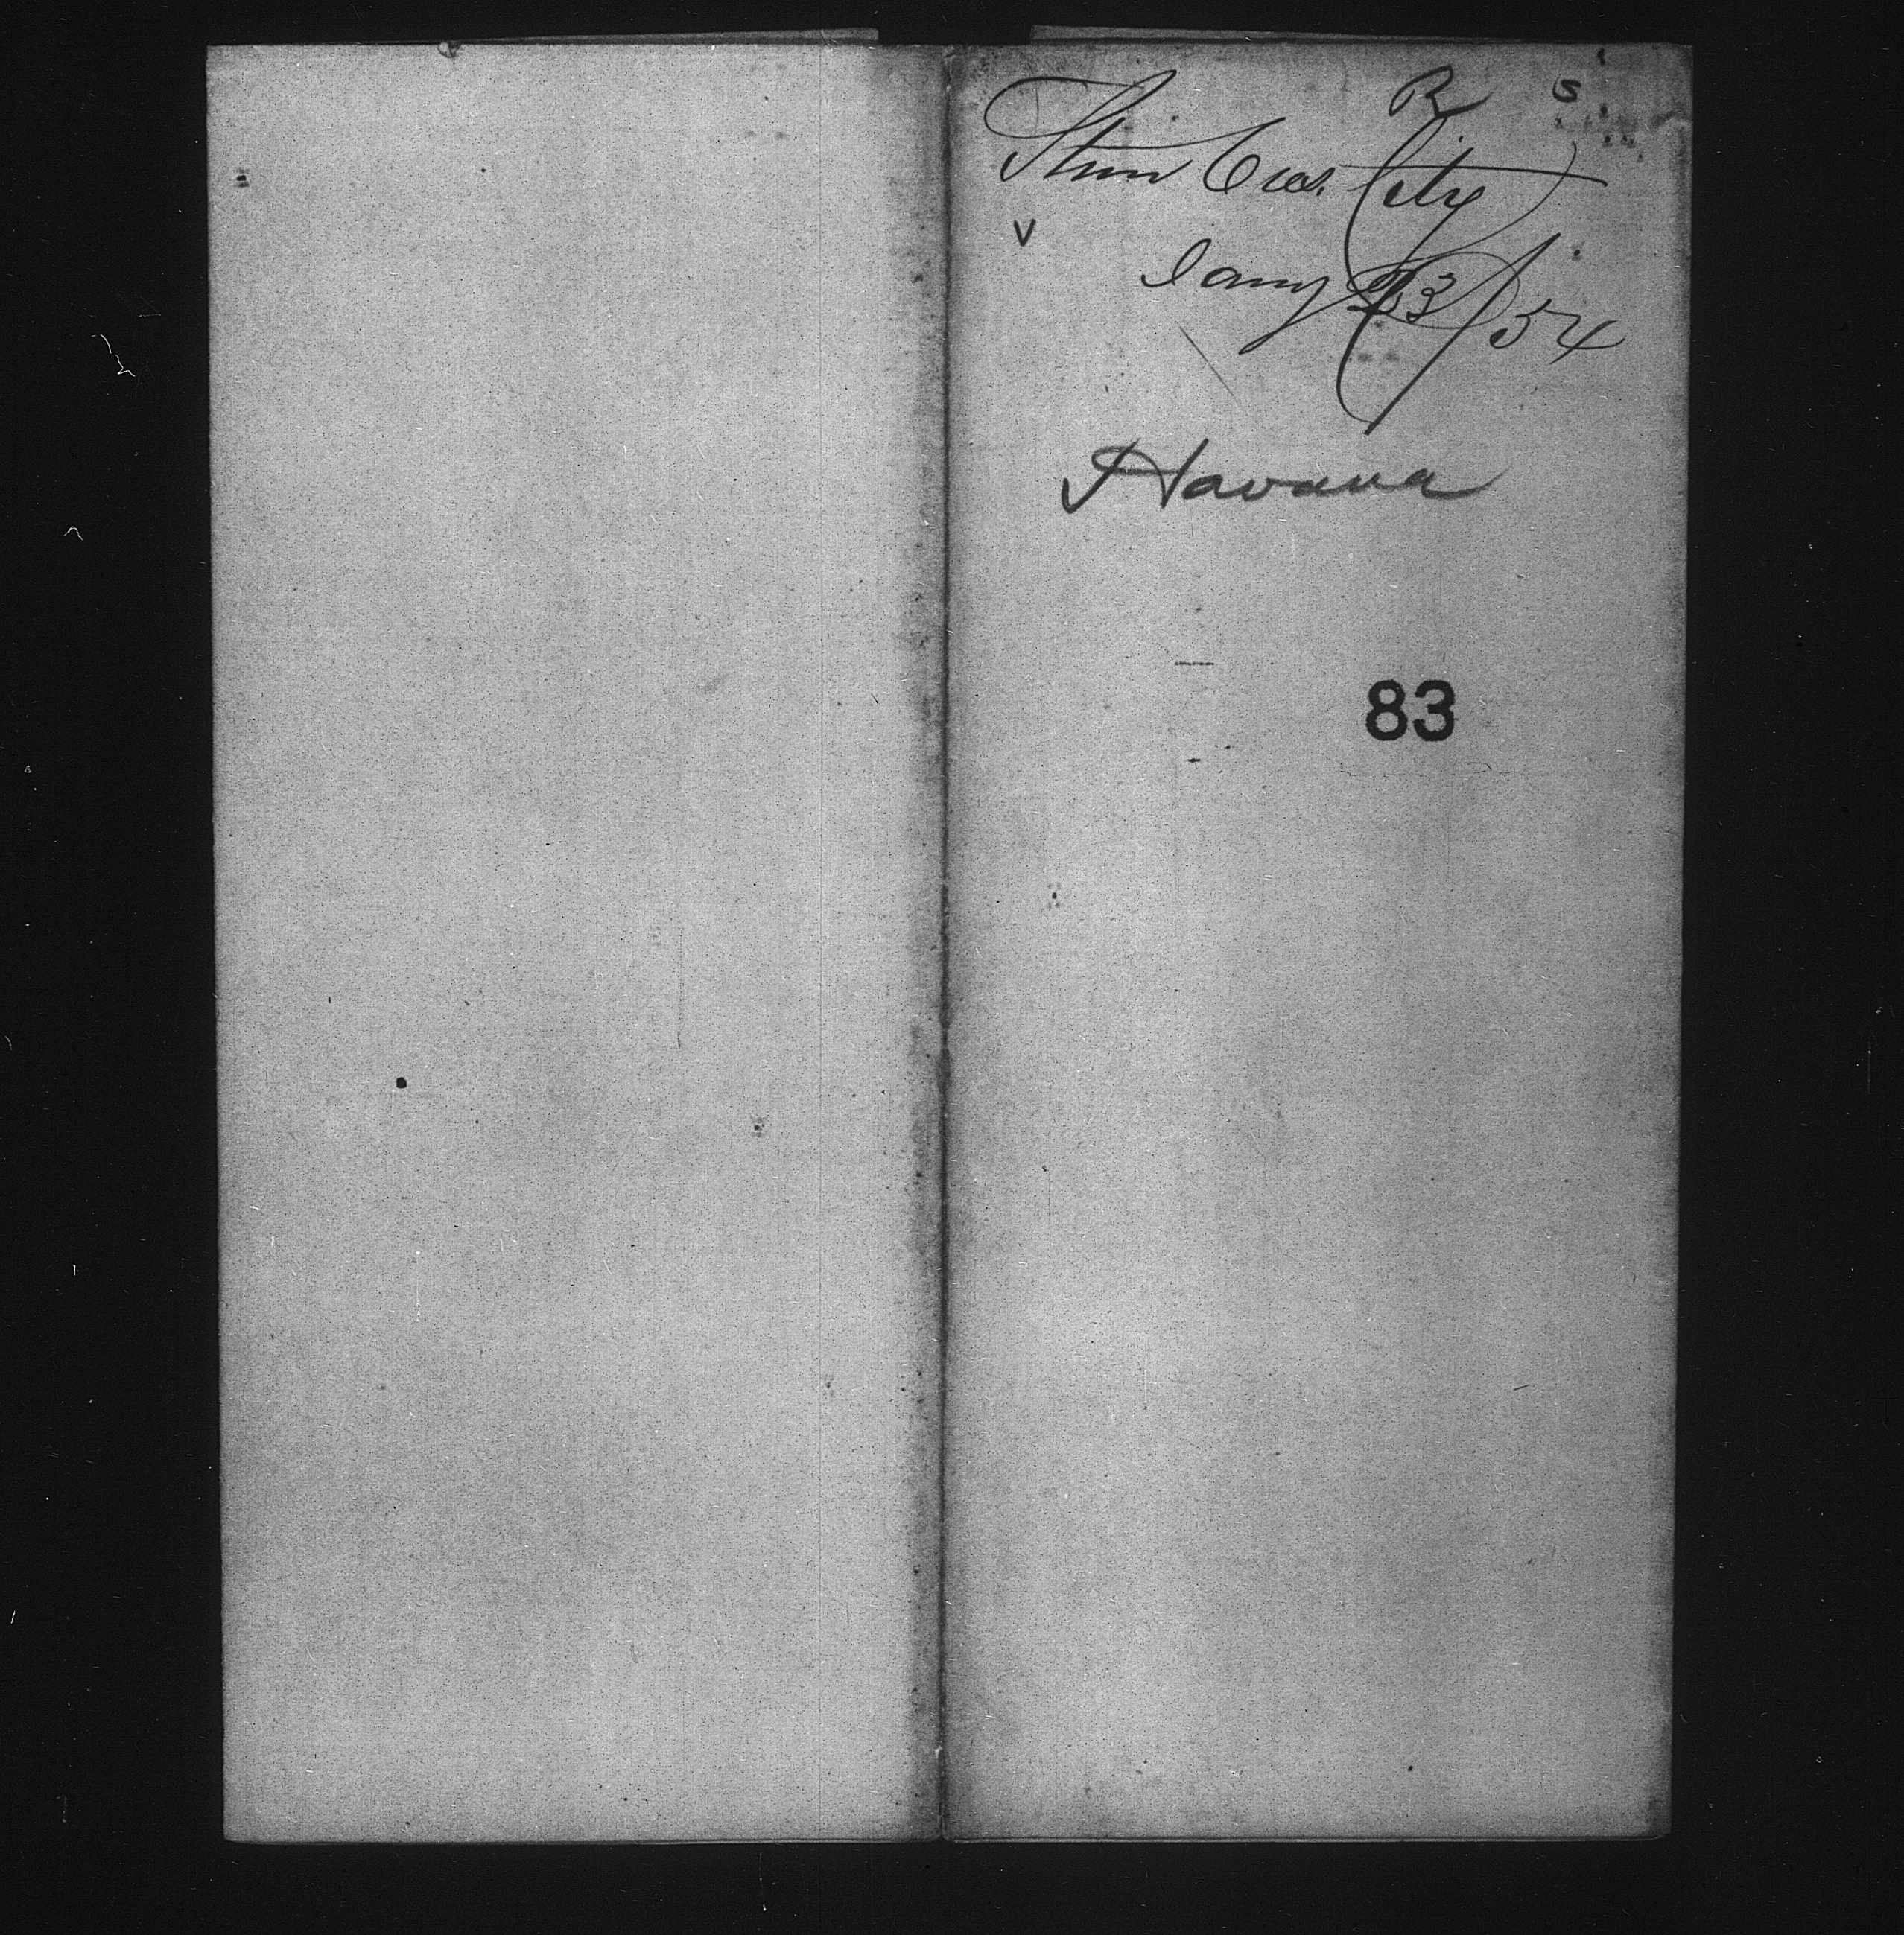 R S
Stmr Cres. City
V
Jany 23/54
Havana
83